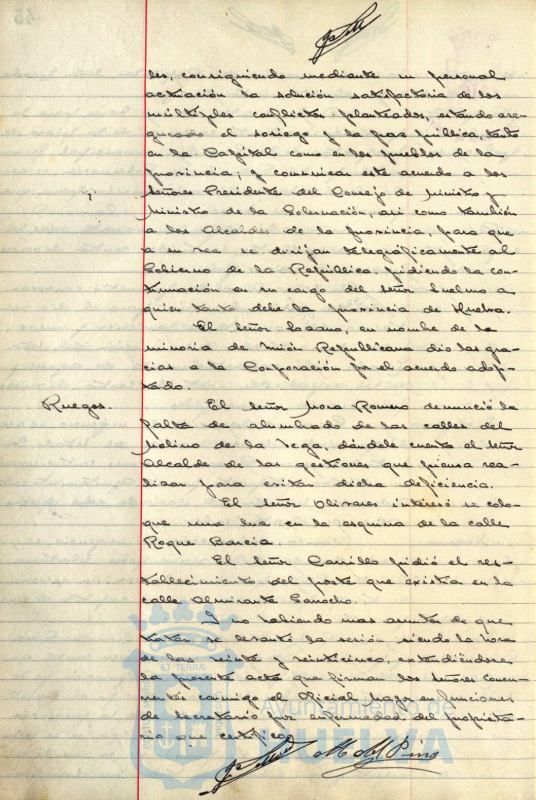 les, consiguiendo mediante su personal
actuación la solución satisfactoria de los
múltiples conflictos planteados, estando ase-
gurado el sosiego y la paz pública, tanto
en la Capital como en los pueblos de la
provincia; y comunicar este acuerdo a los
Señores Presidente del Consejo de Ministro y
Ministro de la Gobernación, asi como también
a los Alcaldes de la provincia, para que
a su vez se dirijan telegráficamente al
Gobierno de la República, pidiendo la con-
tinuación en su cargo del señor Suelmo a
quien tanto debe la provincia de Huelva.
El señor Lozano, en nombre de la
minoria de Unión Republicana dio las gra-
cias a la Corporación por el acuerdo adop-
tado.
Ruegos. El señor Mora Romero denunció la
falta de alumbrado de las calles del
Molino de la Vega, dándole cuenta el señor
Alcalde de las gestiones que piensa rea-
lizar para evitar dicha deficiencia.
El señor Olivares interesó se colo-
que una luz en la esquina de la calle
Roque Barcia.
El señor Carrillo pidió el res-
tablecimiento del poste que existia en la
calle Almirante
Y no habiendo mas asuntos de que
tratar se levantó la sesión siendo la hora
de las veinte y veinticinco, extendiéndose
la presente acta que firman los señores concu-
rrentes conmigo el Oficial Mayor en funciones
de Secretario por enfermedad del propieta-
rio que certifico.
ET TERRAE
Ayuntamiento de
HUELVA
M. del Pino